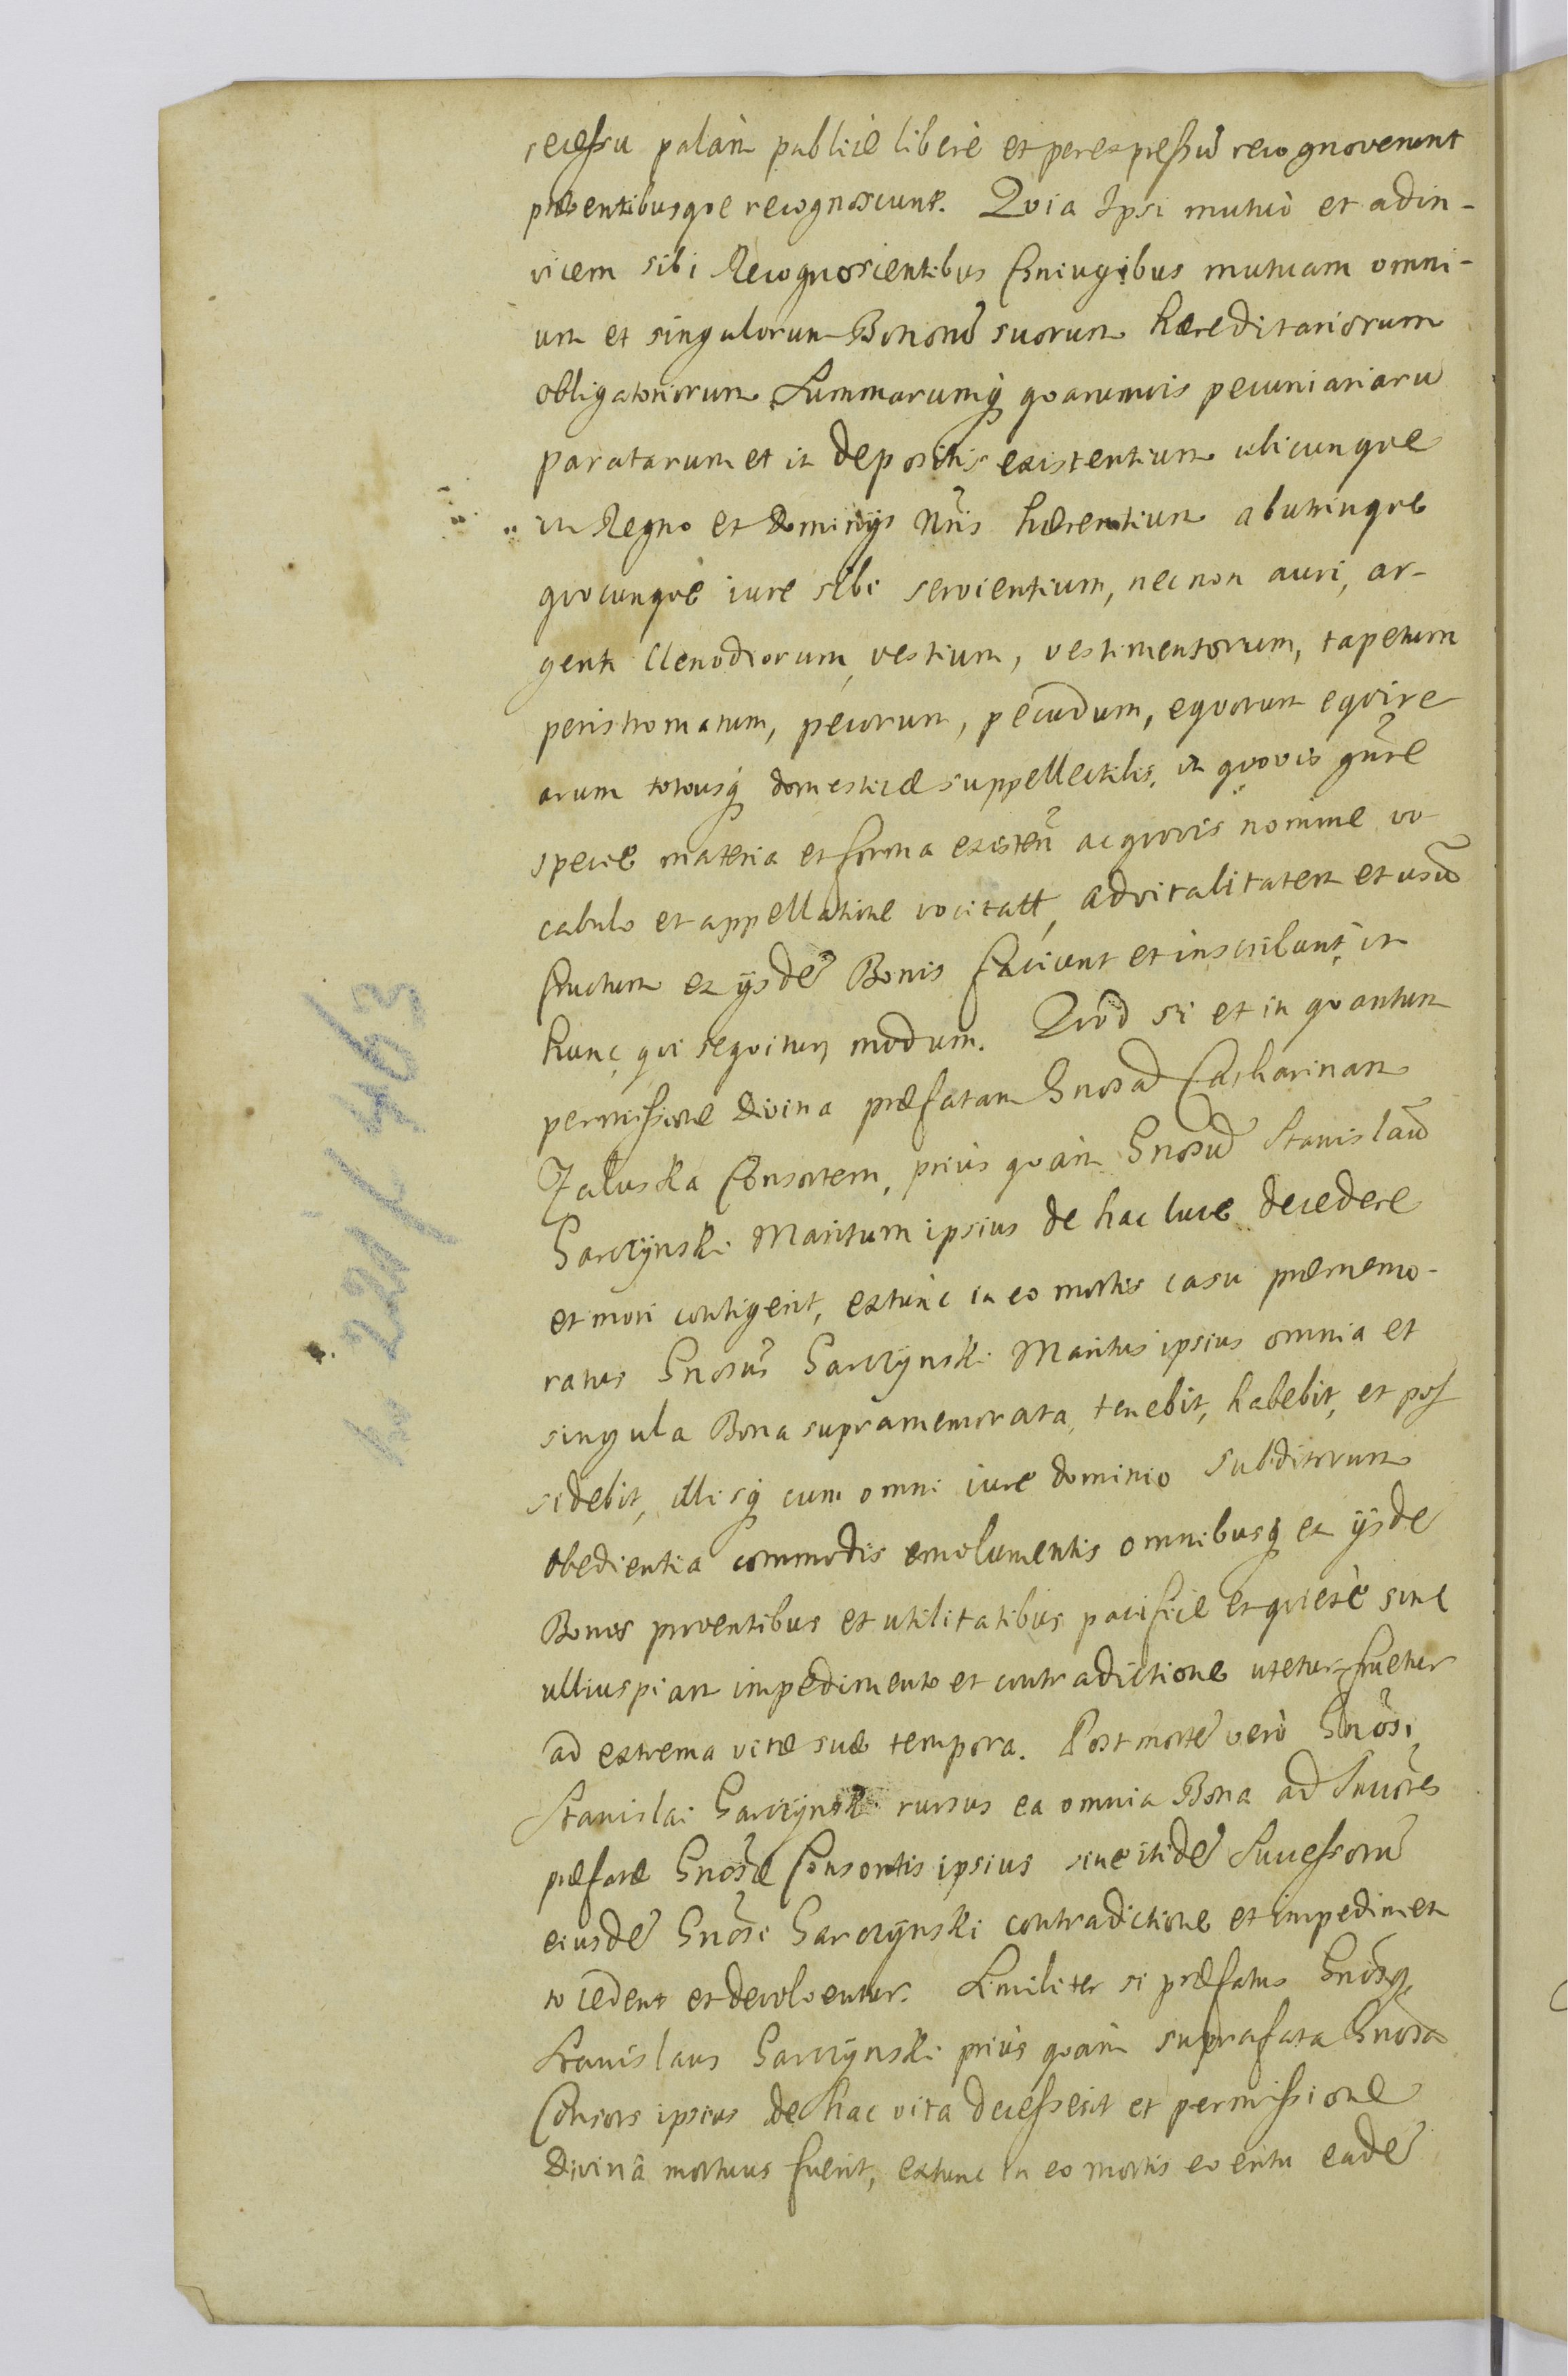 recessu palàm publicè liberè et per expressũ recognoverunt
præsentibusque recognoscunt. Quia Ipsi mutuò et adin-
vicem sibi Recognoscentibus Coniugibus mutuam omni-
um et singulorum Bonorũ suorum hæreditariorum
obligatoriorum Summarumq́ quarumvis pecuniariarũ
paratarum et in depositis existentium ubicunque
in Regno et Dominijs Nr̃is hærentium ab utrinque
quocunque iure sibi servientium, nec non auri, ar-
genti Clenodiorum, vestium, vestimentorum, tapetum
peristromatum, pecorum, pecudum, equorum equire
arum totiusq́ domesticæ suppellectilis, in quovis gñre
specie materia et forma existeñ ac quovis nomine vo
cabulo et appellatione vocitatt, advitalitatem et usũ
fructum ex ijsdẽ Bonis faciunt et inscribunt, in
hunc, qui sequitur, modum. Quòd si et in quantum
permissione Divina præfatam Gnosã Catharinam
Zaluska Consortem, prius quàm Gnosũ Stanislaũ
Garczÿnski Maritum ipsius de hac luce decedere
et mori contigerit, extunc in eo mortis casu præmemo-
ratus Gnosus̃ Garczÿnski Maritus ipsius omnia et
singula Bona supramemorata, tenebit, habebit, et pos
sidebit, illisq́ cum omni iure dominio subditorum
obedientia commodis emolumentis omnibusq́ ex ijsdẽ
Bonis proventibus et utilitatibus pacificè et quietè sine
ulliuspiam impedimento et contradictione utetur fruetur
ad extrema vitæ suæ tempora. Post mortẽ verò Gnõsi
Stanislai Garczÿnski rursus ea omnia Bona ad Succõres
præfatæ Gnõsæ Consortis ipsius sine itidẽ Successorũ
eiusdẽ Gnõsi Garczÿnski contradictione et impedimen
to cedent et devolventur. Similiter si præfatus Gnõsq
Stanislaus Garczÿnski priùs quàm suprafata Gnõsa
Consors ipsius de hac vita decesserit et permissione
Divinâ mortuus fuerit, extunc in eo mortis eventu eadẽ
221/463